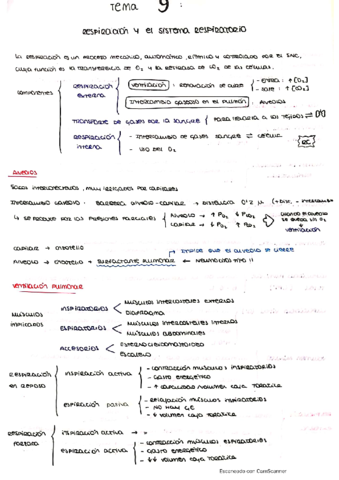 Tema 9:
RESPIRACIÓN Y EL SISTEMA RESPIRATORIO
La RESPIRACIÓN es un PROCESO MECÁNICO, AUTOMÁTICO, RÍTMICO y CONTROLADO POR EL SNC,
cuya función es la TRANSFERENCIA de O2 y la RETIRADA de CO2 de las células.
COMPONENTES
RESPIRACIÓN EXTERNA
VENTILACIÓN: RENOVACIÓN DE AIRE
- ENTRA: ↑[O2]
- SALE: ↑[CO2]
INTERCAMBIO GASEOSO EN EL PULMÓN: ALVEOLOS
TRANSPORTE DE GASES POR LA SANGRE
RESPIRACIÓN INTERNA
- INTERCAMBIO DE GASES SANGRE ⇌ CÉLULA
- USO DEL O2
RC
ALVEOLOS
Sacos interconectados, muy irrigados por capilares
Intercambio gaseoso: BARRERA ALVEOLO-CAPILAR → DISTANCIA
↳ se produce por las PRESIONES PARCIALES
Alveolo → ↑PO2 ↓PCO2
Capilar → ↓PO2 ↑PCO2
VENTILACIÓN
capilar → endotelio
IMPIDE QUE EL ALVEOLO SE CIERRE
alveolo → epitelio + SURFACTANTE PULMONAR ← NEUMOCITOS TIPO II
VENTILACIÓN PULMONAR
MÚSCULOS IMPLICADOS
INSPIRATORIOS
MÚSCULOS INTERCOSTALES EXTERNOS
DIAFRAGMA
ESPIRATORIOS
MÚSCULOS INTERCOSTALES INTERNOS
MÚSCULOS ABDOMINALES
ACCESORIOS
ESTERNOCLEIDOMASTOIDEO
ESCALENO
RESPIRACIÓN EN REPOSO
INSPIRACIÓN ACTIVA
- CONTRACCIÓN MÚSCULOS INSPIRATORIOS
- GASTO ENERGÉTICO
- ↑ CAPACIDAD/VOLUMEN CAJA TORÁCICA
ESPIRACIÓN PASIVA
- RELAJACIÓN MÚSCULOS INSPIRATORIOS
- NO HAY GE
- ↓ VOLUMEN CAJA TORÁCICA
RESPIRACIÓN FORZADA
INSPIRACIÓN ACTIVA → =
ESPIRACIÓN ACTIVA
- CONTRACCIÓN MÚSCULOS ESPIRATORIOS
- GASTO ENERGÉTICO
- ↓↓ VOLUMEN CAJA TORÁCICA
Escaneado con CamScanner